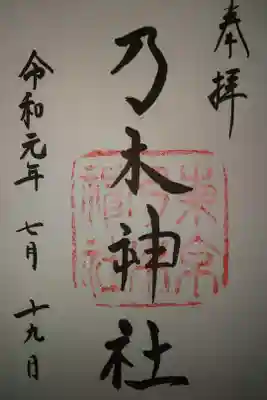 奉拝
乃木神社
東京乃木神社
令和元年 七月 十九日